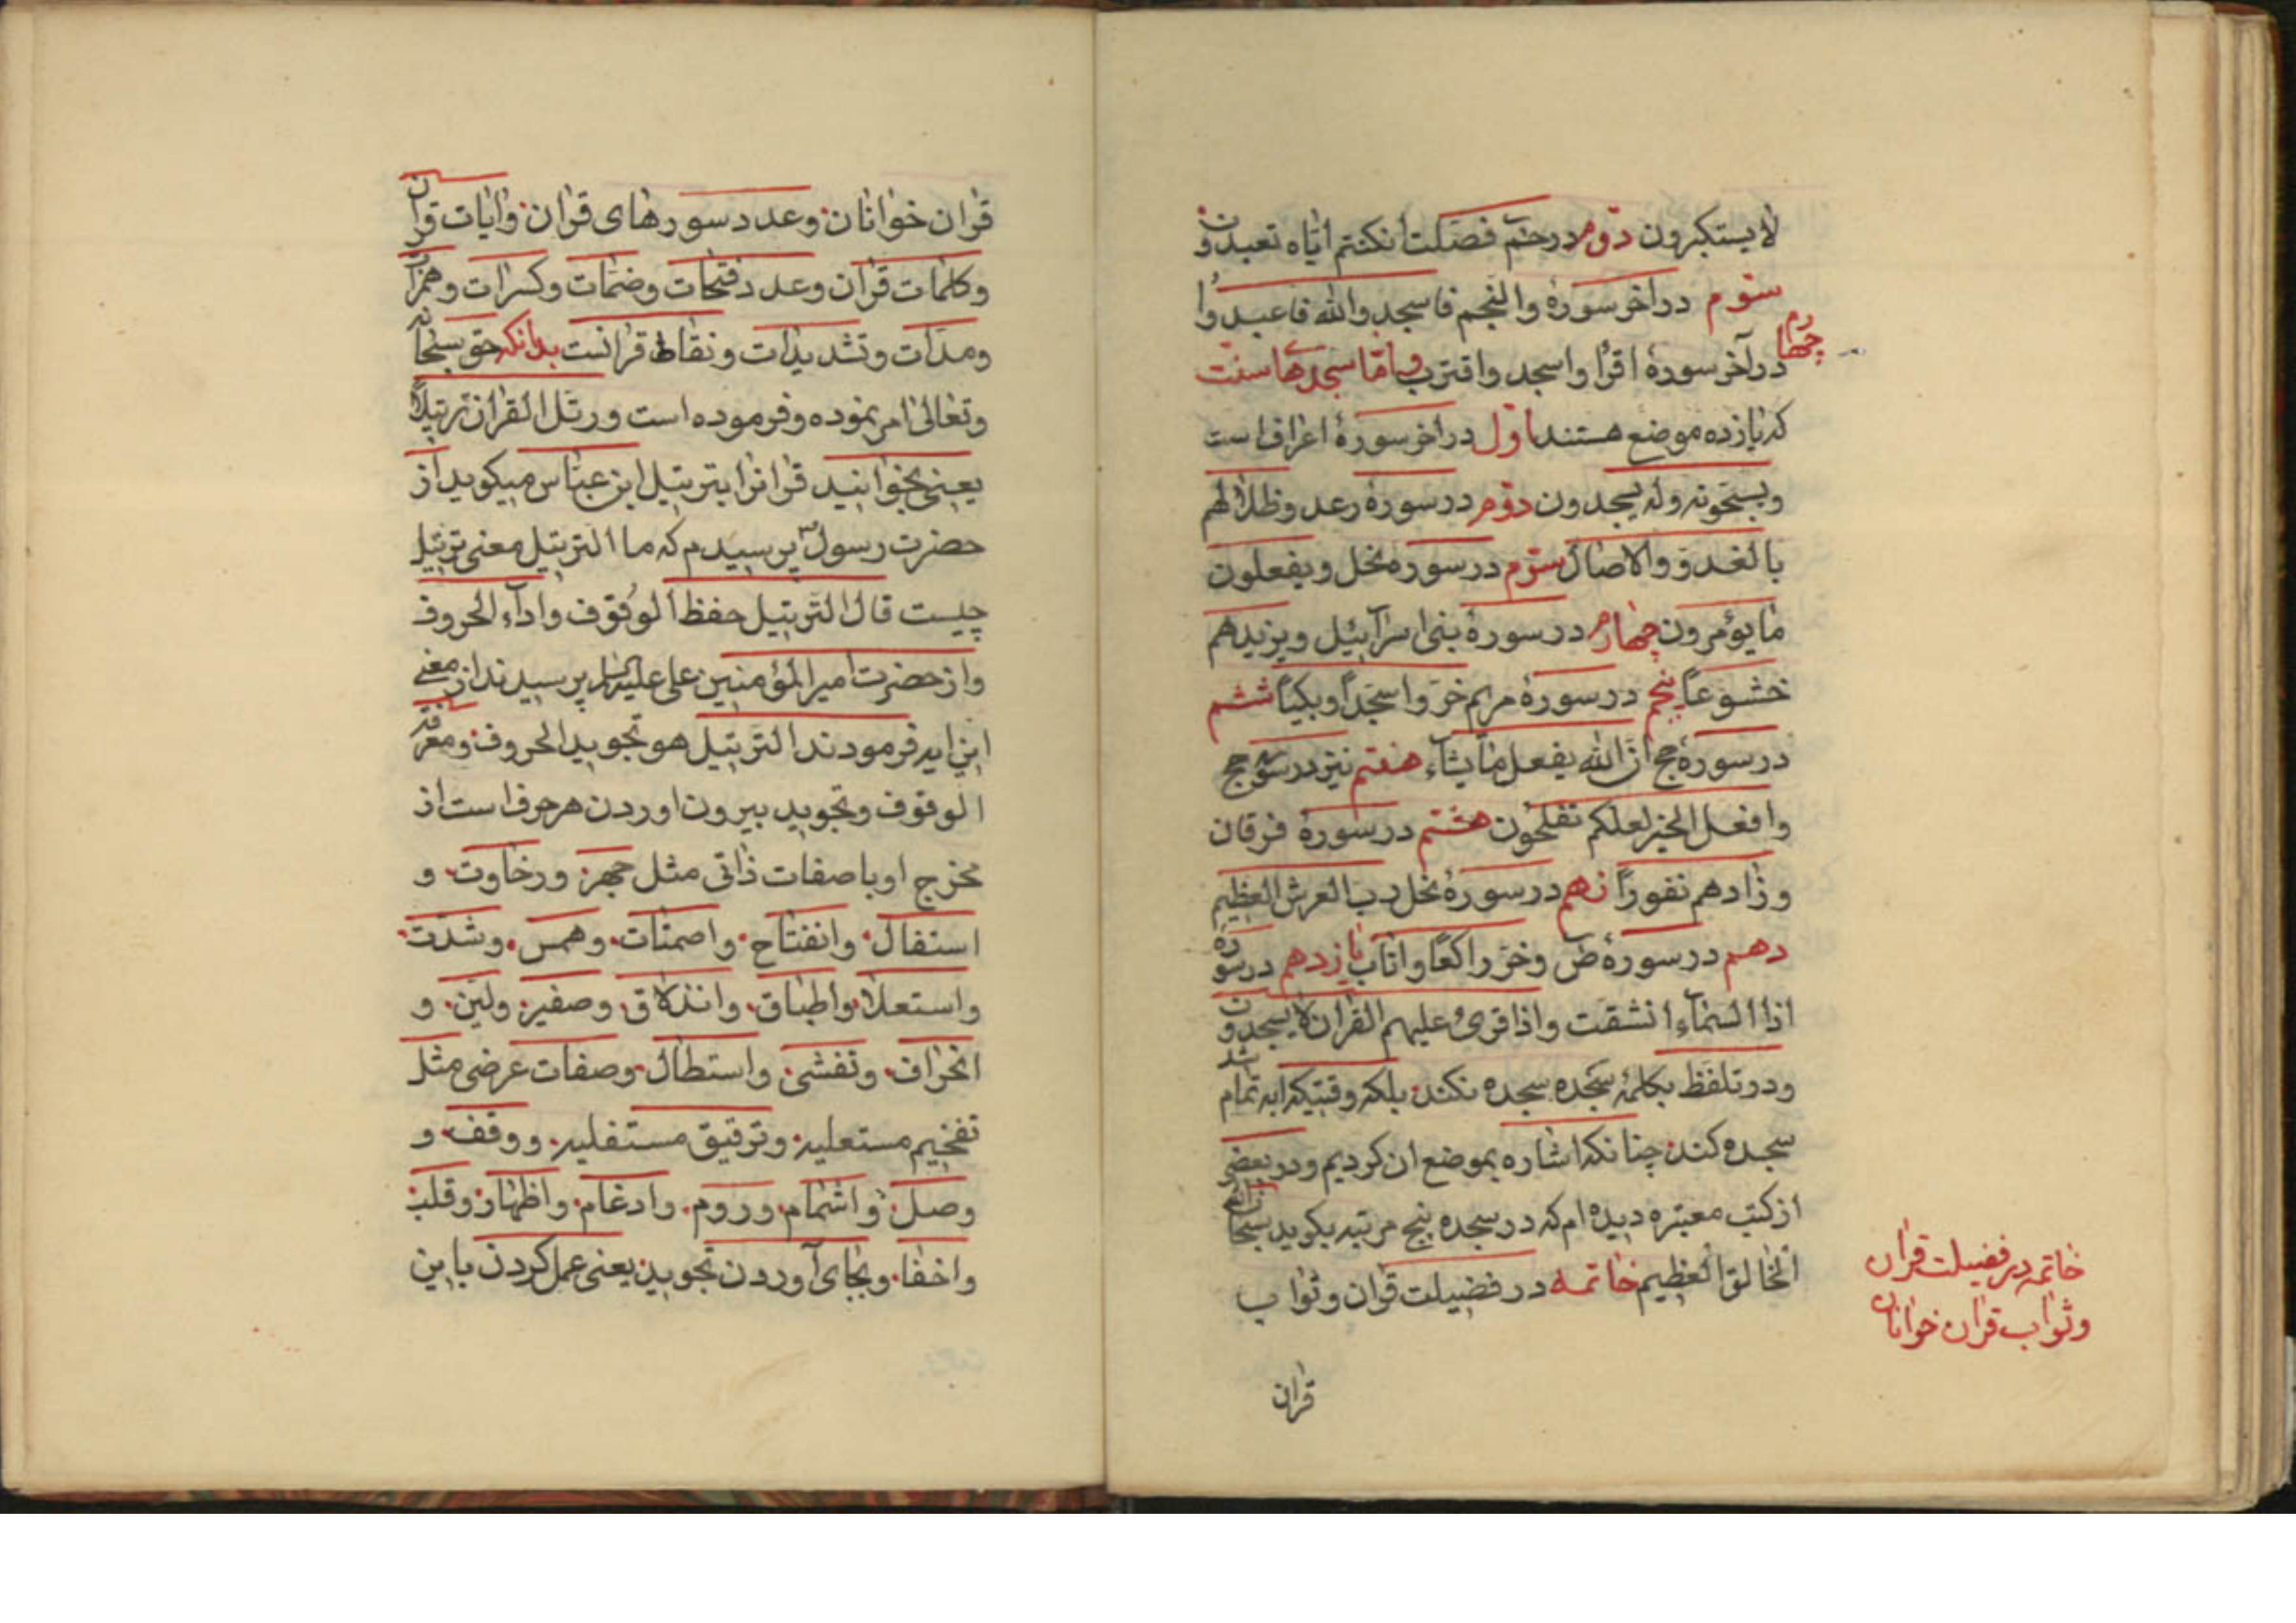 لا یستکبرون دوم در حم فصلت ان کنتم ایاه تعبدون
سوم در اخر سورهٔ والنجم فاسجدوا لله فاعبدوا
چهارم در آخر سورهٔ اقرا واسجد واقترب و اما سجدهٔهاسنت
که یازده موضع هستند اول در اخر سورهٔ اعراف است
ویسبحونه وله یسجدون دوم در سورهٔ رعد وظلالهم
بالغدو والاصال سوم در سوره نحل ویفعلون
ما یؤمرون چهارم در سورهٔ بنی اسرآئیل ویزیدهم
خشوعاً پنجم در سورهٔ مریم خروا سجداً وبکیاً ششم
در سورهٔ حج ان الله یفعل ما یشآء هفتم نیز در سورهٔ حج
وافعلوا الخیر لعلکم تفلحون هشتم در سورهٔ فرقان
وزادهم نفوراً نهم در سورهٔ نحل رب العرش العظیم
دهم در سورهٔ ص وخر راکعاً واناب یازدهم در سورهٔ
اذا السمآء انشقت واذا قرئ علیهم القران لا یسجدون
ودر تلفظ بکلمهٔ سجده سجده نکند بلکه وقتیکه ایه تمام شد
سجده کند چنانکه اشاره بموضع ان کردیم ودر بعضی
از کتب معتبره دیده ام که در سجده پنج مرتبه بکوید سبحان الله
الخالق العظیم خاتمه در فضیلت قران وثواب
خاتمه در فضیلت قران
وثواب قران خوانان
قران
قران خوانان وعدد سورهای قران وایات قران
وکلمات قران وعدد فتحات وضمات وکسرات وهمزات
ومدات وتشدیدات ونقاط قرانست بدانکه حق سبحانه
وتعالی امر نموده وفرموده است ورتل القران ترتیلاً
یعنی بخوانید قرانرا بترتیل ابن عباس میکوید از
حضرت رسول پرسیدم که ما الترتیل معنی ترتیل
چیست قال الترتیل حفظ الوقوف واداء الحروف
واز حضرت امیر المؤمنین علی علیه السلام پرسیدند از معنی
این ایه فرمودند الترتیل هو تجوید الحروف ومعرفة
الوقوف وتجوید بیرون اوردن هر حرف است از
مخرج او با صفات ذاتی مثل جهر ورخاوت و
استفال وانفتاح واصمات وهمس وشدت
واستعلا واطباق وانذلاق وصفیر ولین و
انحراف وتفشی واستطال وصفات عرضی مثل
تفخیم مستعلیه وترقیق مستفلیه ووقف و
وصل واشمام وروم وادغام واظهار وقلب
واخفا وبجای آوردن تجوید یعنی عمل کردن باین